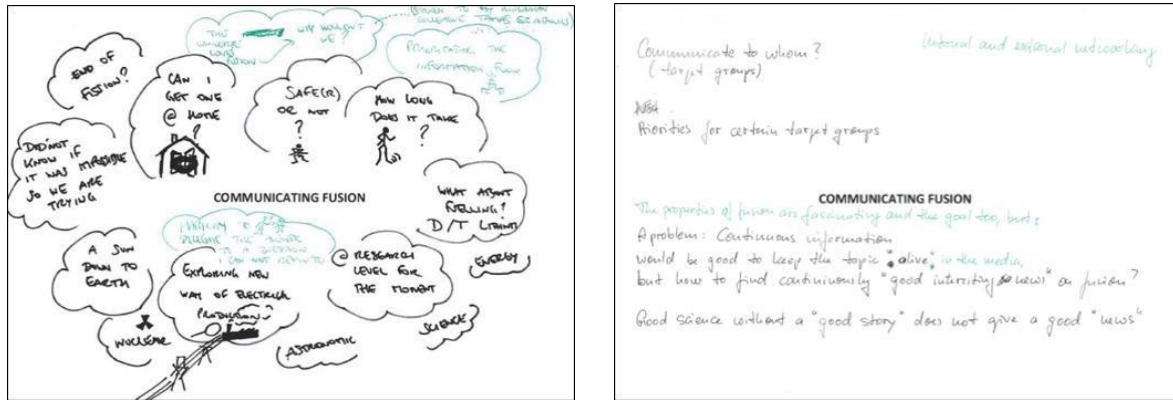 THE
UNIVERSE
LOVES
FUSION
WHY WOULDN'T
WE?
END OF
FISTION?
CAN I
GET ONE
@ HOME
?
SAFE(R)
OR NOT
?
HOW LONG
DOES IT TAKE
?
THE
INFORMATION FLOW
DID NOT
KNOW IF
IT WAS IMPOSSIBLE
SO WE ARE
TRYING
COMMUNICATING FUSION
WHAT ABOUT
FUELLING?
D/T LITHIUM
A SUN
DOWN TO
EARTH
EXPLORING NEW
WAY OF ELECTRICAL
PRODUCTION
@ RESEARCH
LEVEL FOR
THE MOMENT
ENERGY
SCIENCE
NUCLEAR
Communicate to whom?
(target groups)
Internal and external networking
Priorities for certain target groups
COMMUNICATING FUSION
The properties of fusion are fascinating and the goal too, but:
A problem: Continuous information
would be good to keep the topic "alive" in the media,
but how to find continiously "good intersting news" on fusion?
Good science without a "good story" does not give a good "news"